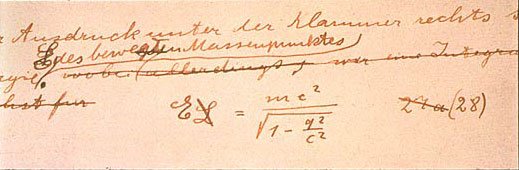 r Ausdruck unter der Klammer rechts s
E des bewegten Massenpunktes
gie. wobei (allerdings) nur eine Integra
ist für
E L = mc² / √(1 - q²/c²) 27a (28)